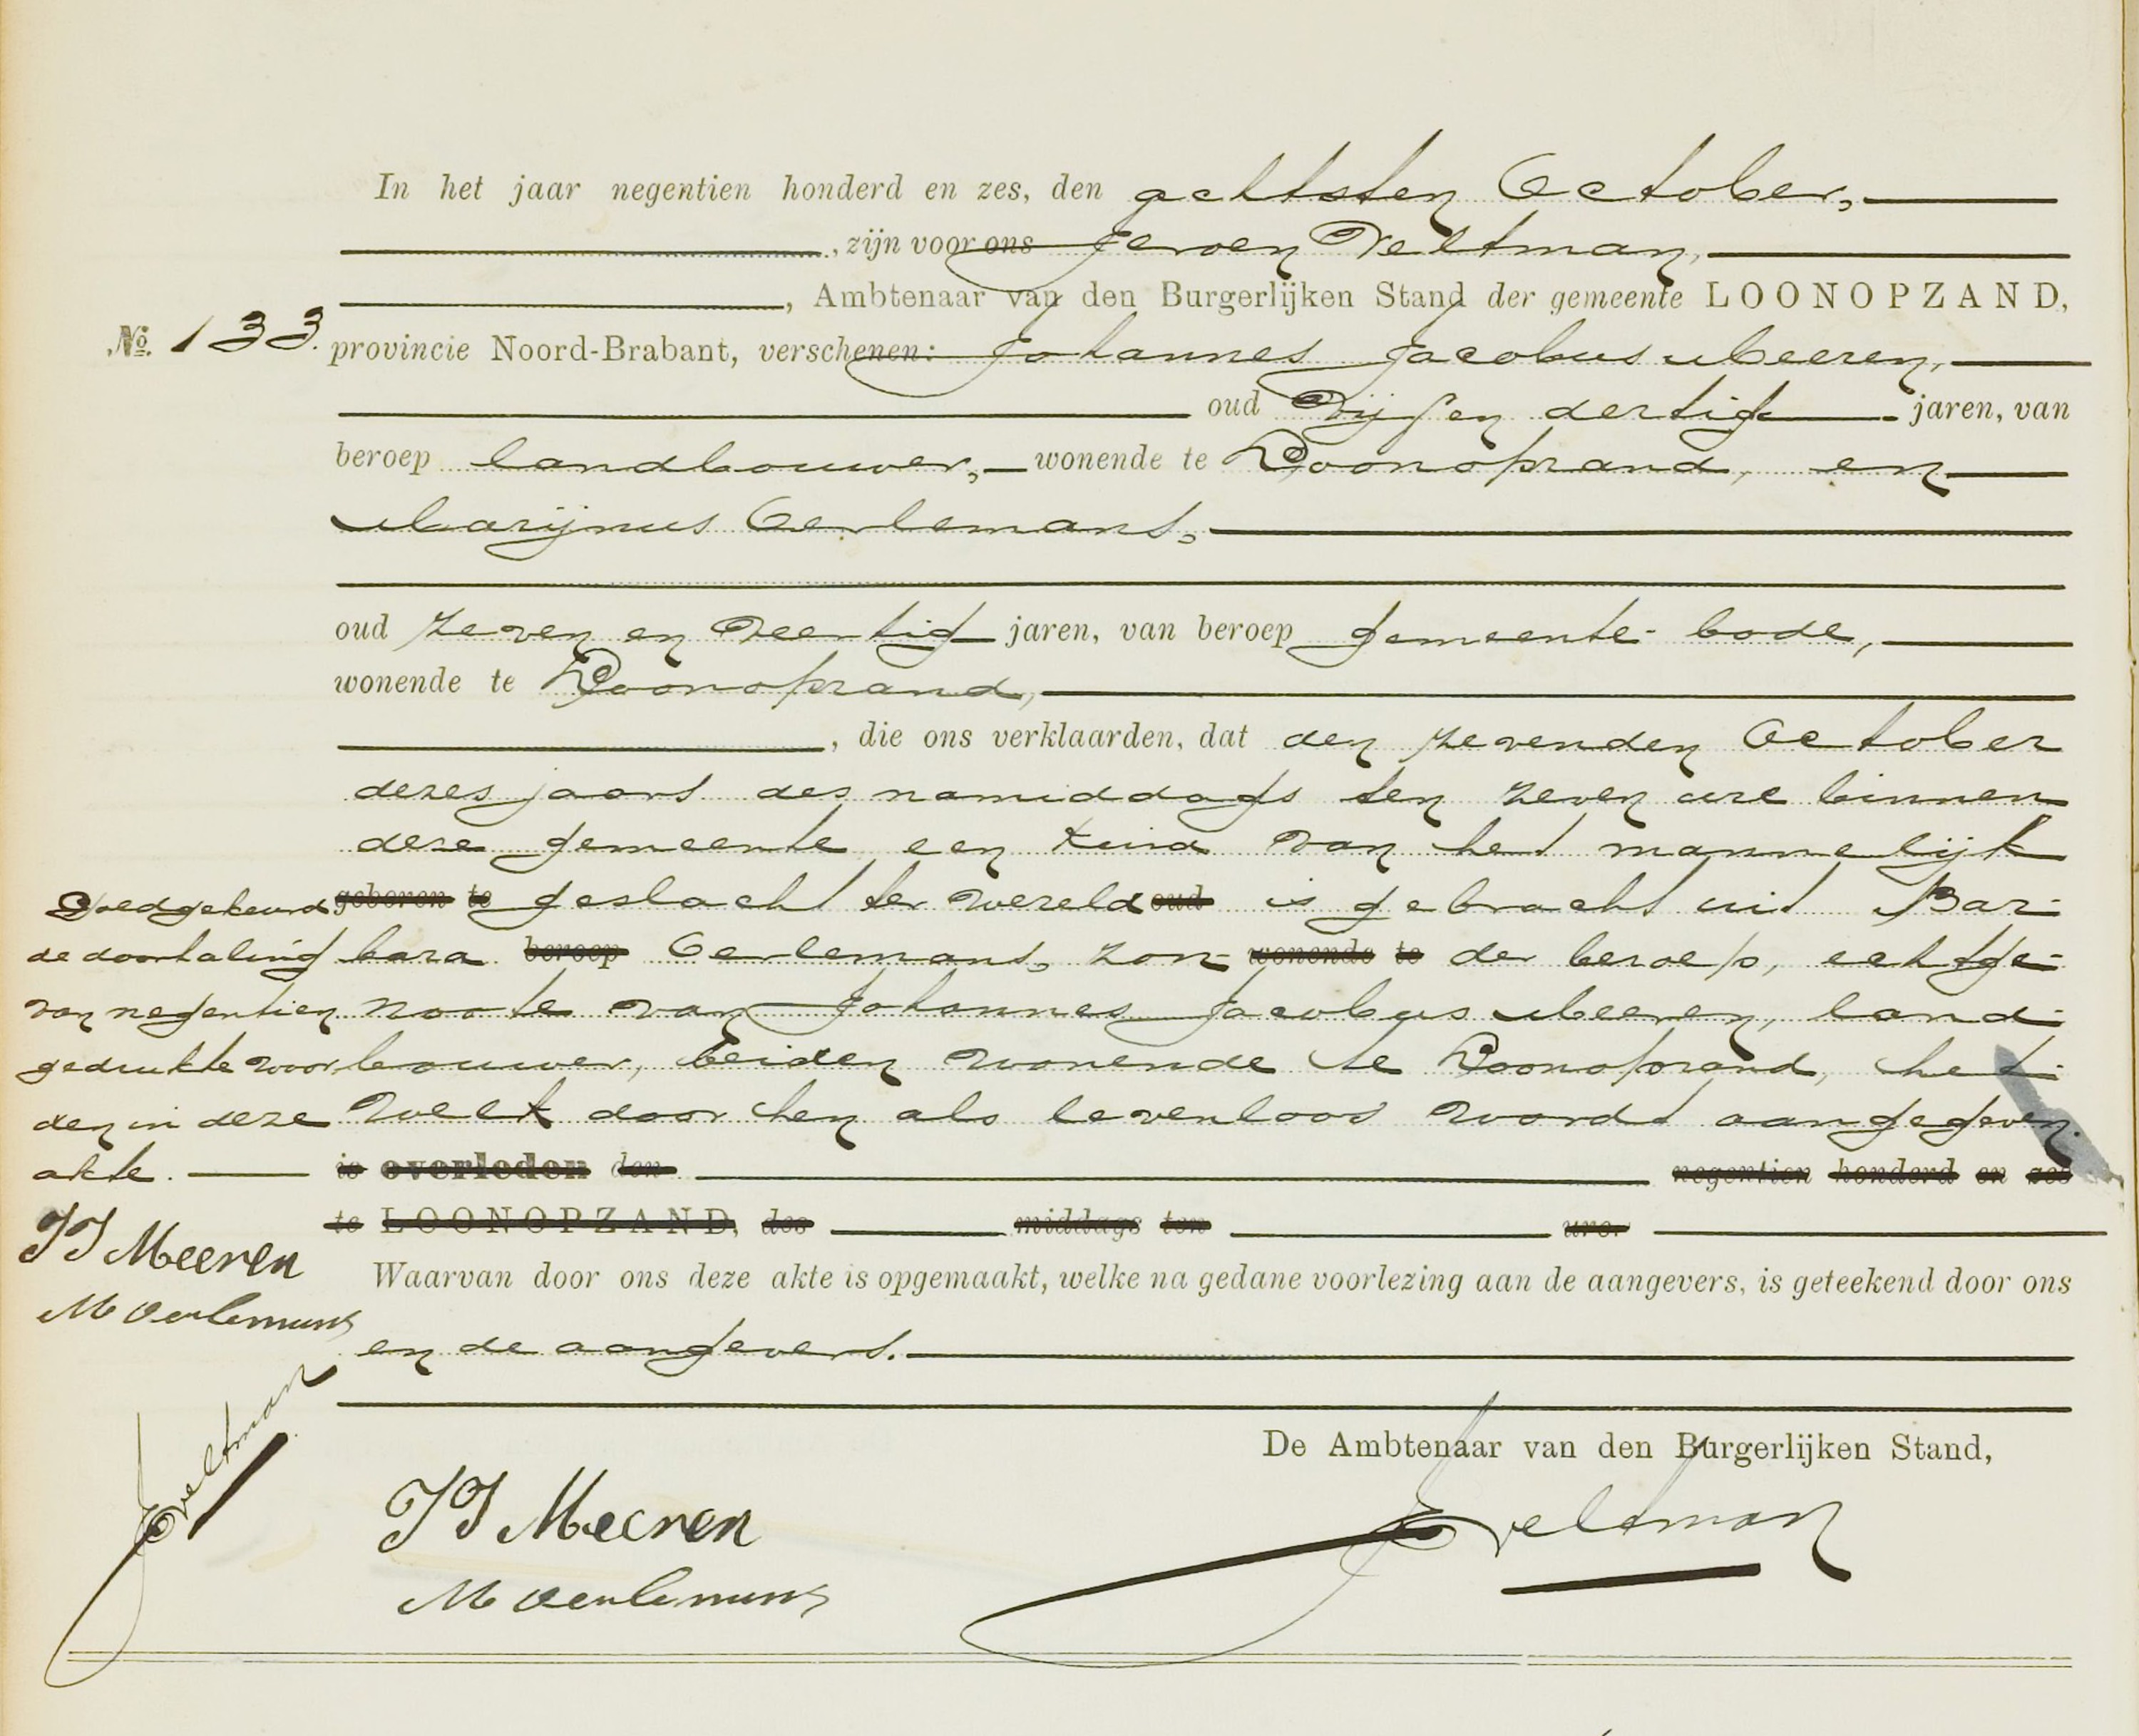 In het jaar negentien honderd en zes, den achtsten October,
, zijn voor ons Jeroen Veltman,
, Ambtenaar van den Burgerlijken Stand der gemeente LOONOPZAND,
No. 133. provincie Noord-Brabant, verschenen: Johannes Jacobus Meeren,
oud vijf en dertig jaren, van
beroep landbouwer, wonende te Loonopzand, en
Marijnus Oerlemans,
oud zeven en veertig jaren, van beroep gemeente-bode,
wonende te Loonopzand,
, die ons verklaarden, dat den zevenden October
dezes jaars des namiddags ten zeven ure binnen
deze gemeente een kind van het mannelijk
geboren te geslacht ter wereld oud is gebracht uit Bar-
bara beroep Oerlemans, zon- wonende te der beroep, echtge-
noote van Johannes Jacobus Meeren, land-
bouwer, beiden wonende te Loonopzand, het-
welk door hen als levenloos wordt aangegeven.
is overleden den negentien honderd en zes
te LOONOPZAND, des middags ten ure.
Waarvan door ons deze akte is opgemaakt, welke na gedane voorlezing aan de aangevers, is geteekend door ons
en de aangevers.
Goedgekeurd
de doorhaling
van negentien
gedrukte woor
den in deze
akte.
JJ Meeren
M Oerlemans
JVeltman
De Ambtenaar van den Burgerlijken Stand,
JJ Meeren
M Oerlemans
JVeltman